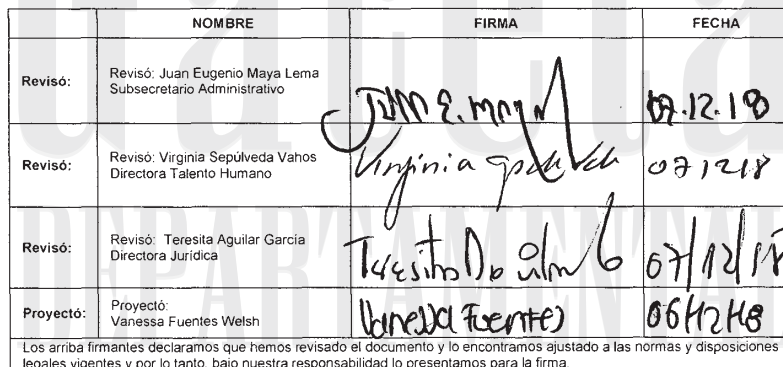 NOMBRE FIRMA FECHA
Revisó: Revisó: Juan Eugenio Maya Lema
Subsecretario Administrativo
JUAN E. MAYA 07.12.18
Revisó: Revisó: Virginia Sepúlveda Vahos
Directora Talento Humano
Virginia 071218
Revisó: Revisó: Teresita Aguilar García
Directora Jurídica
Teresita Aguilar G 07/12/18
Proyectó: Proyectó:
Vanessa Fuentes Welsh
Vanessa Fuentes 06/12/18
Los arriba firmantes declaramos que hemos revisado el documento y lo encontramos ajustado a las normas y disposiciones
legales vigentes y por lo tanto, bajo nuestra responsabilidad lo presentamos para la firma.
DEPARTAMENTAL